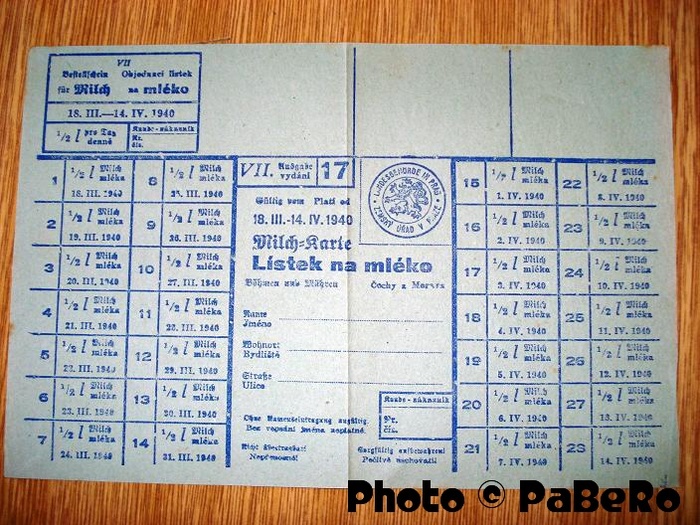 VII
Bestellschein Objednací lístek
für Milch na mléko
18. III.—14. IV. 1940
1/2 l pro Tag
denně
Kunde - zákazník
Nr.
čís.
1 1/2 l Milch mléka 18. III. 1940
2 1/2 l Milch mléka 19. III. 1940
3 1/2 l Milch mléka 20. III. 1940
4 1/2 l Milch mléka 21. III. 1940
5 1/2 l Milch mléka 22. III. 1940
6 1/2 l Milch mléka 23. III. 1940
7 1/2 l Milch mléka 24. III. 1940
8 1/2 l Milch mléka 25. III. 1940
9 1/2 l Milch mléka 26. III. 1940
10 1/2 l Milch mléka 27. III. 1940
11 1/2 l Milch mléka 28. III. 1940
12 1/2 l Milch mléka 29. III. 1940
13 1/2 l Milch mléka 30. III. 1940
14 1/2 l Milch mléka 31. III. 1940
VII. Ausgabe vydání 17
Gültig vom Platí od
18. III.-14. IV. 1940
Milch-Karte
Lístek na mléko
Böhmen und Mähren Čechy a Morava
LANDESBEHÖRDE IN PRAG
ZEMSKÝ ÚŘAD V PRAZE
Name
Jméno
Wohnort
Bydliště
Straße
Ulice
Kunde - zákazník
Nr.
čís.
Ohne Namenseintragung ungültig.
Bez vepsání jména neplatné.
Nicht übertragbar!
Nepřenosné!
Sorgfältig aufbewahren!
Pečlivě uschovati!
15 1/2 l Milch mléka 1. IV. 1940
16 1/2 l Milch mléka 2. IV. 1940
17 1/2 l Milch mléka 3. IV. 1940
18 1/2 l Milch mléka 4. IV. 1940
19 1/2 l Milch mléka 5. IV. 1940
20 1/2 l Milch mléka 6. IV. 1940
21 1/2 l Milch mléka 7. IV. 1940
22 1/2 l Milch mléka 8. IV. 1940
23 1/2 l Milch mléka 9. IV. 1940
24 1/2 l Milch mléka 10. IV. 1940
25 1/2 l Milch mléka 11. IV. 1940
26 1/2 l Milch mléka 12. IV. 1940
27 1/2 l Milch mléka 13. IV. 1940
28 1/2 l Milch mléka 14. IV. 1940
Photo © PaBeRo